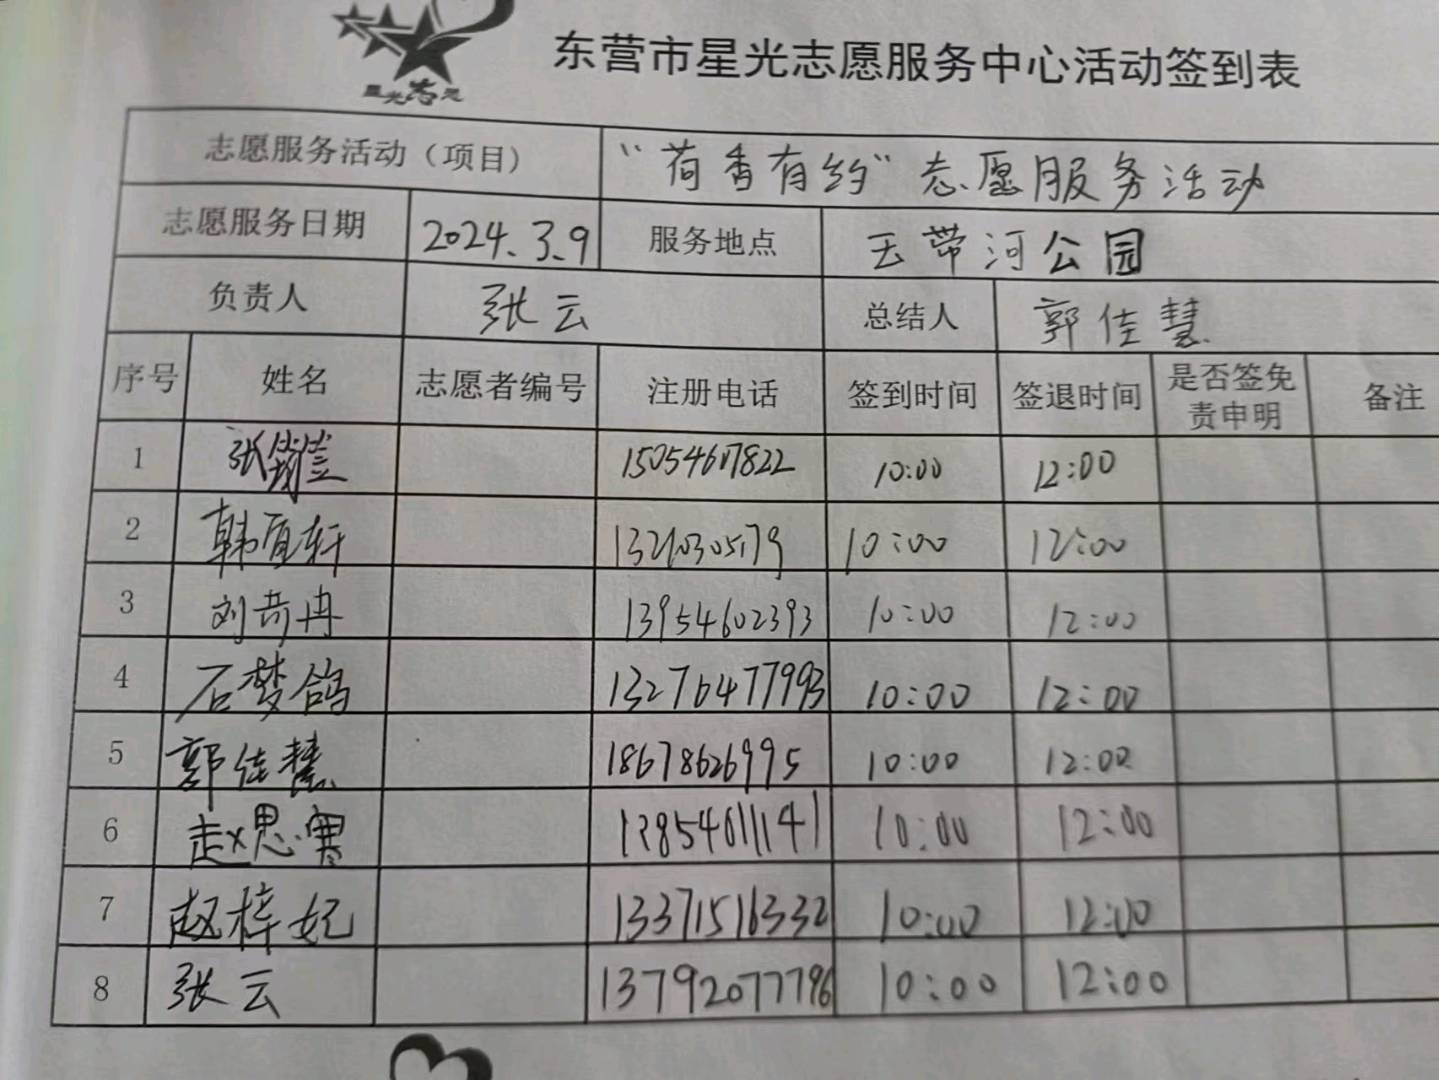 星光志愿
东营市星光志愿服务中心活动签到表
志愿服务活动（项目） “荷香有约”志愿服务活动
志愿服务日期 2024.3.9 服务地点 玉带河公园
负责人 张云 总结人 郭佳慧
序号 姓名 志愿者编号 注册电话 签到时间 签退时间 是否签免责申明 备注
1 张 15054617822 10:00 12:00
2 韩宜轩 13210305179 10:00 12:00
3 刘苛冉 13954602393 10:00 12:00
4 石梦鸽 13276477993 10:00 12:00
5 郭佳慧 18678626995 10:00 12:00
6 赵思寒 13854611141 10:00 12:00
7 赵梓妃 13371516332 10:00 12:00
8 张云 13792077796 10:00 12:00